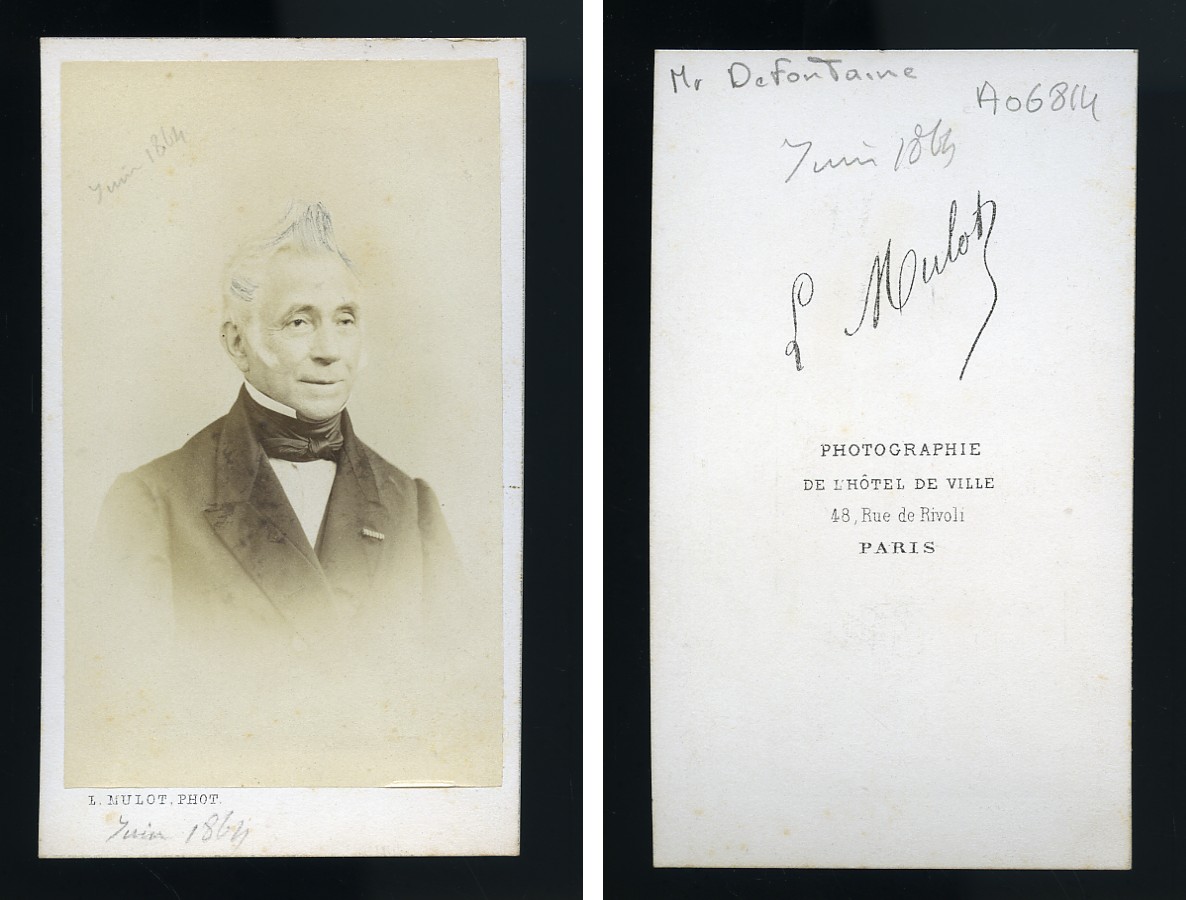 Juin 1864
L. MULOT, PHOT.
Juin 1864
Mr Defontaine
A06814
Juin 1864
L Mulot
PHOTOGRAPHIE
DE L'HÔTEL DE VILLE
48, Rue de Rivoli
PARIS